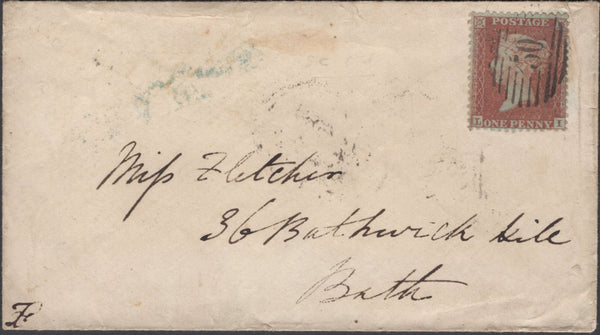 POSTAGE
50
L I
ONE PENNY
Miſs Fletcher
36 Bathwick Hill
Bath
F